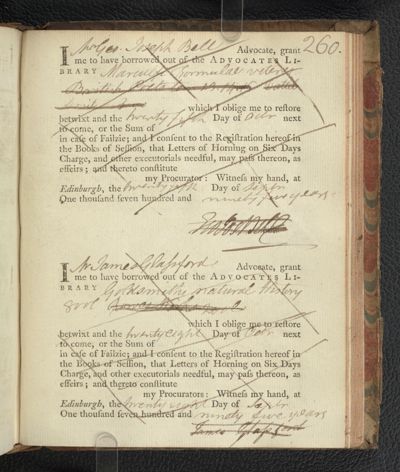 260.
I Mr Geo. Joseph Bell Advocate, grant
me to have borrowed out of the ADVOCATES LI-
BRARY Marculfi formulae veteres
which I oblige me to restore
betwixt and the twenty fifth Day of Octr next
to come, or the Sum of
in case of Failzie; and I consent to the Registration hereof in
the Books of Session, that Letters of Horning on Six Days
Charge, and other executorials needful, may pass thereon, as
effeirs; and thereto constitute
my Procurator: Witness my hand, at
Edinburgh, the twenty fifth Day of Septr
One thousand seven hundred and ninety five years
I Mr James Clapperd Advocate, grant
me to have borrowed out of the ADVOCATES LI-
BRARY Goldsmiths natural History
8 vol
which I oblige me to restore
betwixt and the twenty eight Day of Octr next
to come, or the Sum of
in case of Failzie; and I consent to the Registration hereof in
the Books of Session, that Letters of Horning on Six Days
Charge, and other executorials needful, may pass thereon, as
effeirs; and thereto constitute
my Procurators: Witness my hand, at
Edinburgh, the twenty eight Day of Septr
One thousand seven hundred and ninety five years
James